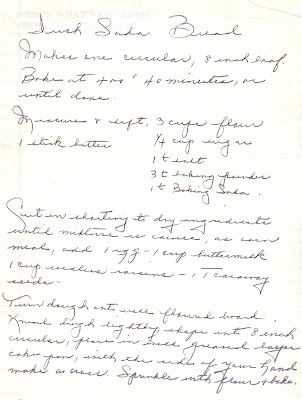 Irish Soda Bread
Makes one circular, 8 inch loaf.
Bake at 400° 40 minutes, or
until done.
Measure & sift, 3 cups flour
1 stick butter 1/4 cup sugar
1 t salt
3 t baking powder
1 t Baking Soda.
Cut in shorting to dry ingredients
until mixture is coarse, as corn
meal, add 1 egg - 1 cup buttermilk
1 cup seedless raisins - 1 T caraway
seeds.
Turn dough onto well floured board.
Knead dough lightly, shape into 8 inch
circular, place in well greased layer
cake pan, with the side of your hand
make a cross. Sprinkle with flour & bake.